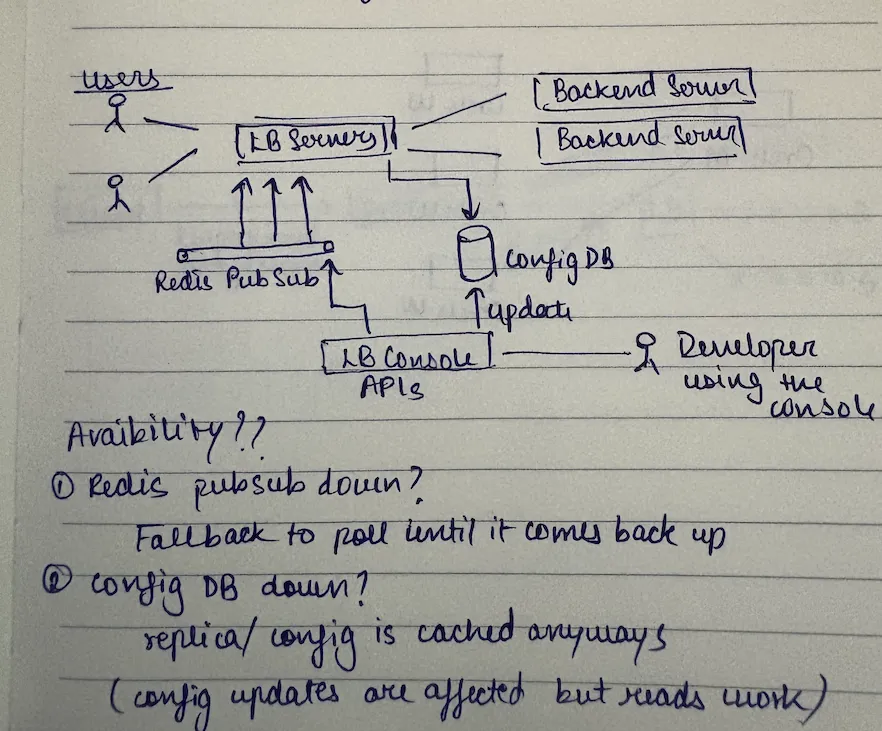 Users
Backend Server
LB Servers
Backend Server
Redis PubSub
Config DB
update
LB Console
APIs
Developer
using the
console
Avaibility??
① Redis pubsub down?
Fallback to poll until it comes back up
② Config DB down?
replica/ config is cached anyways
(config updates are affected but reads work)